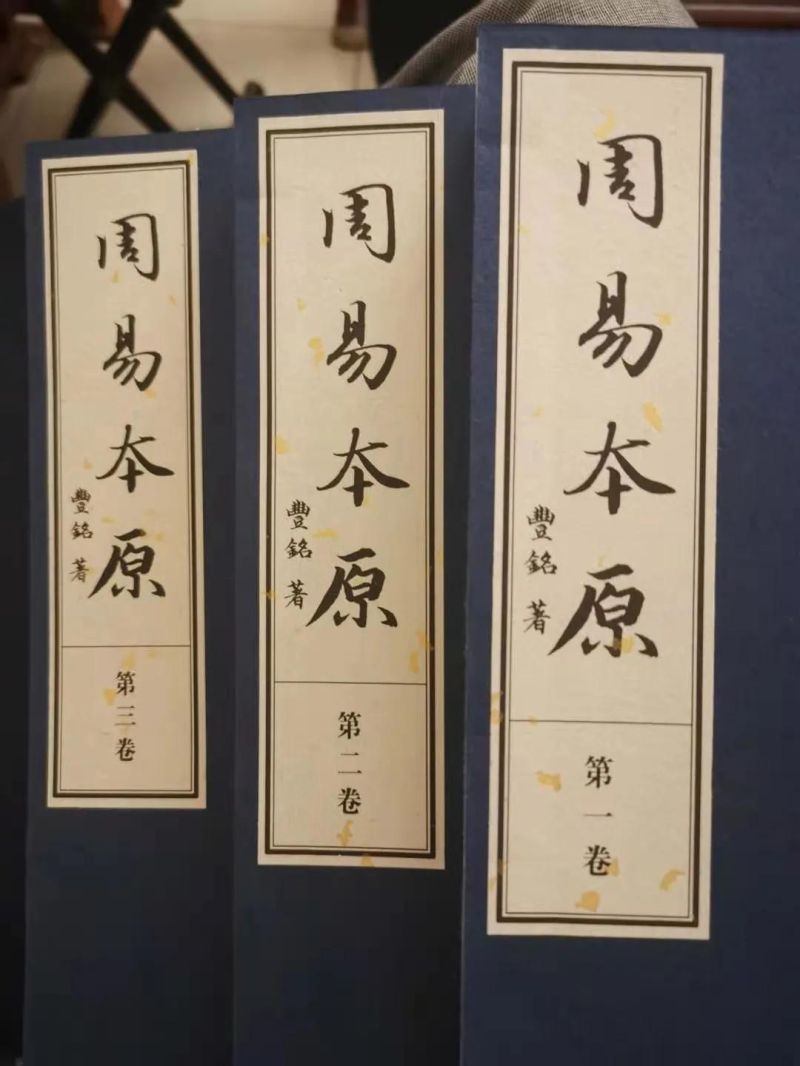 周易本原
豐銘 著
第一卷
周易本原
豐銘 著
第二卷
周易本原
豐銘 著
第三卷